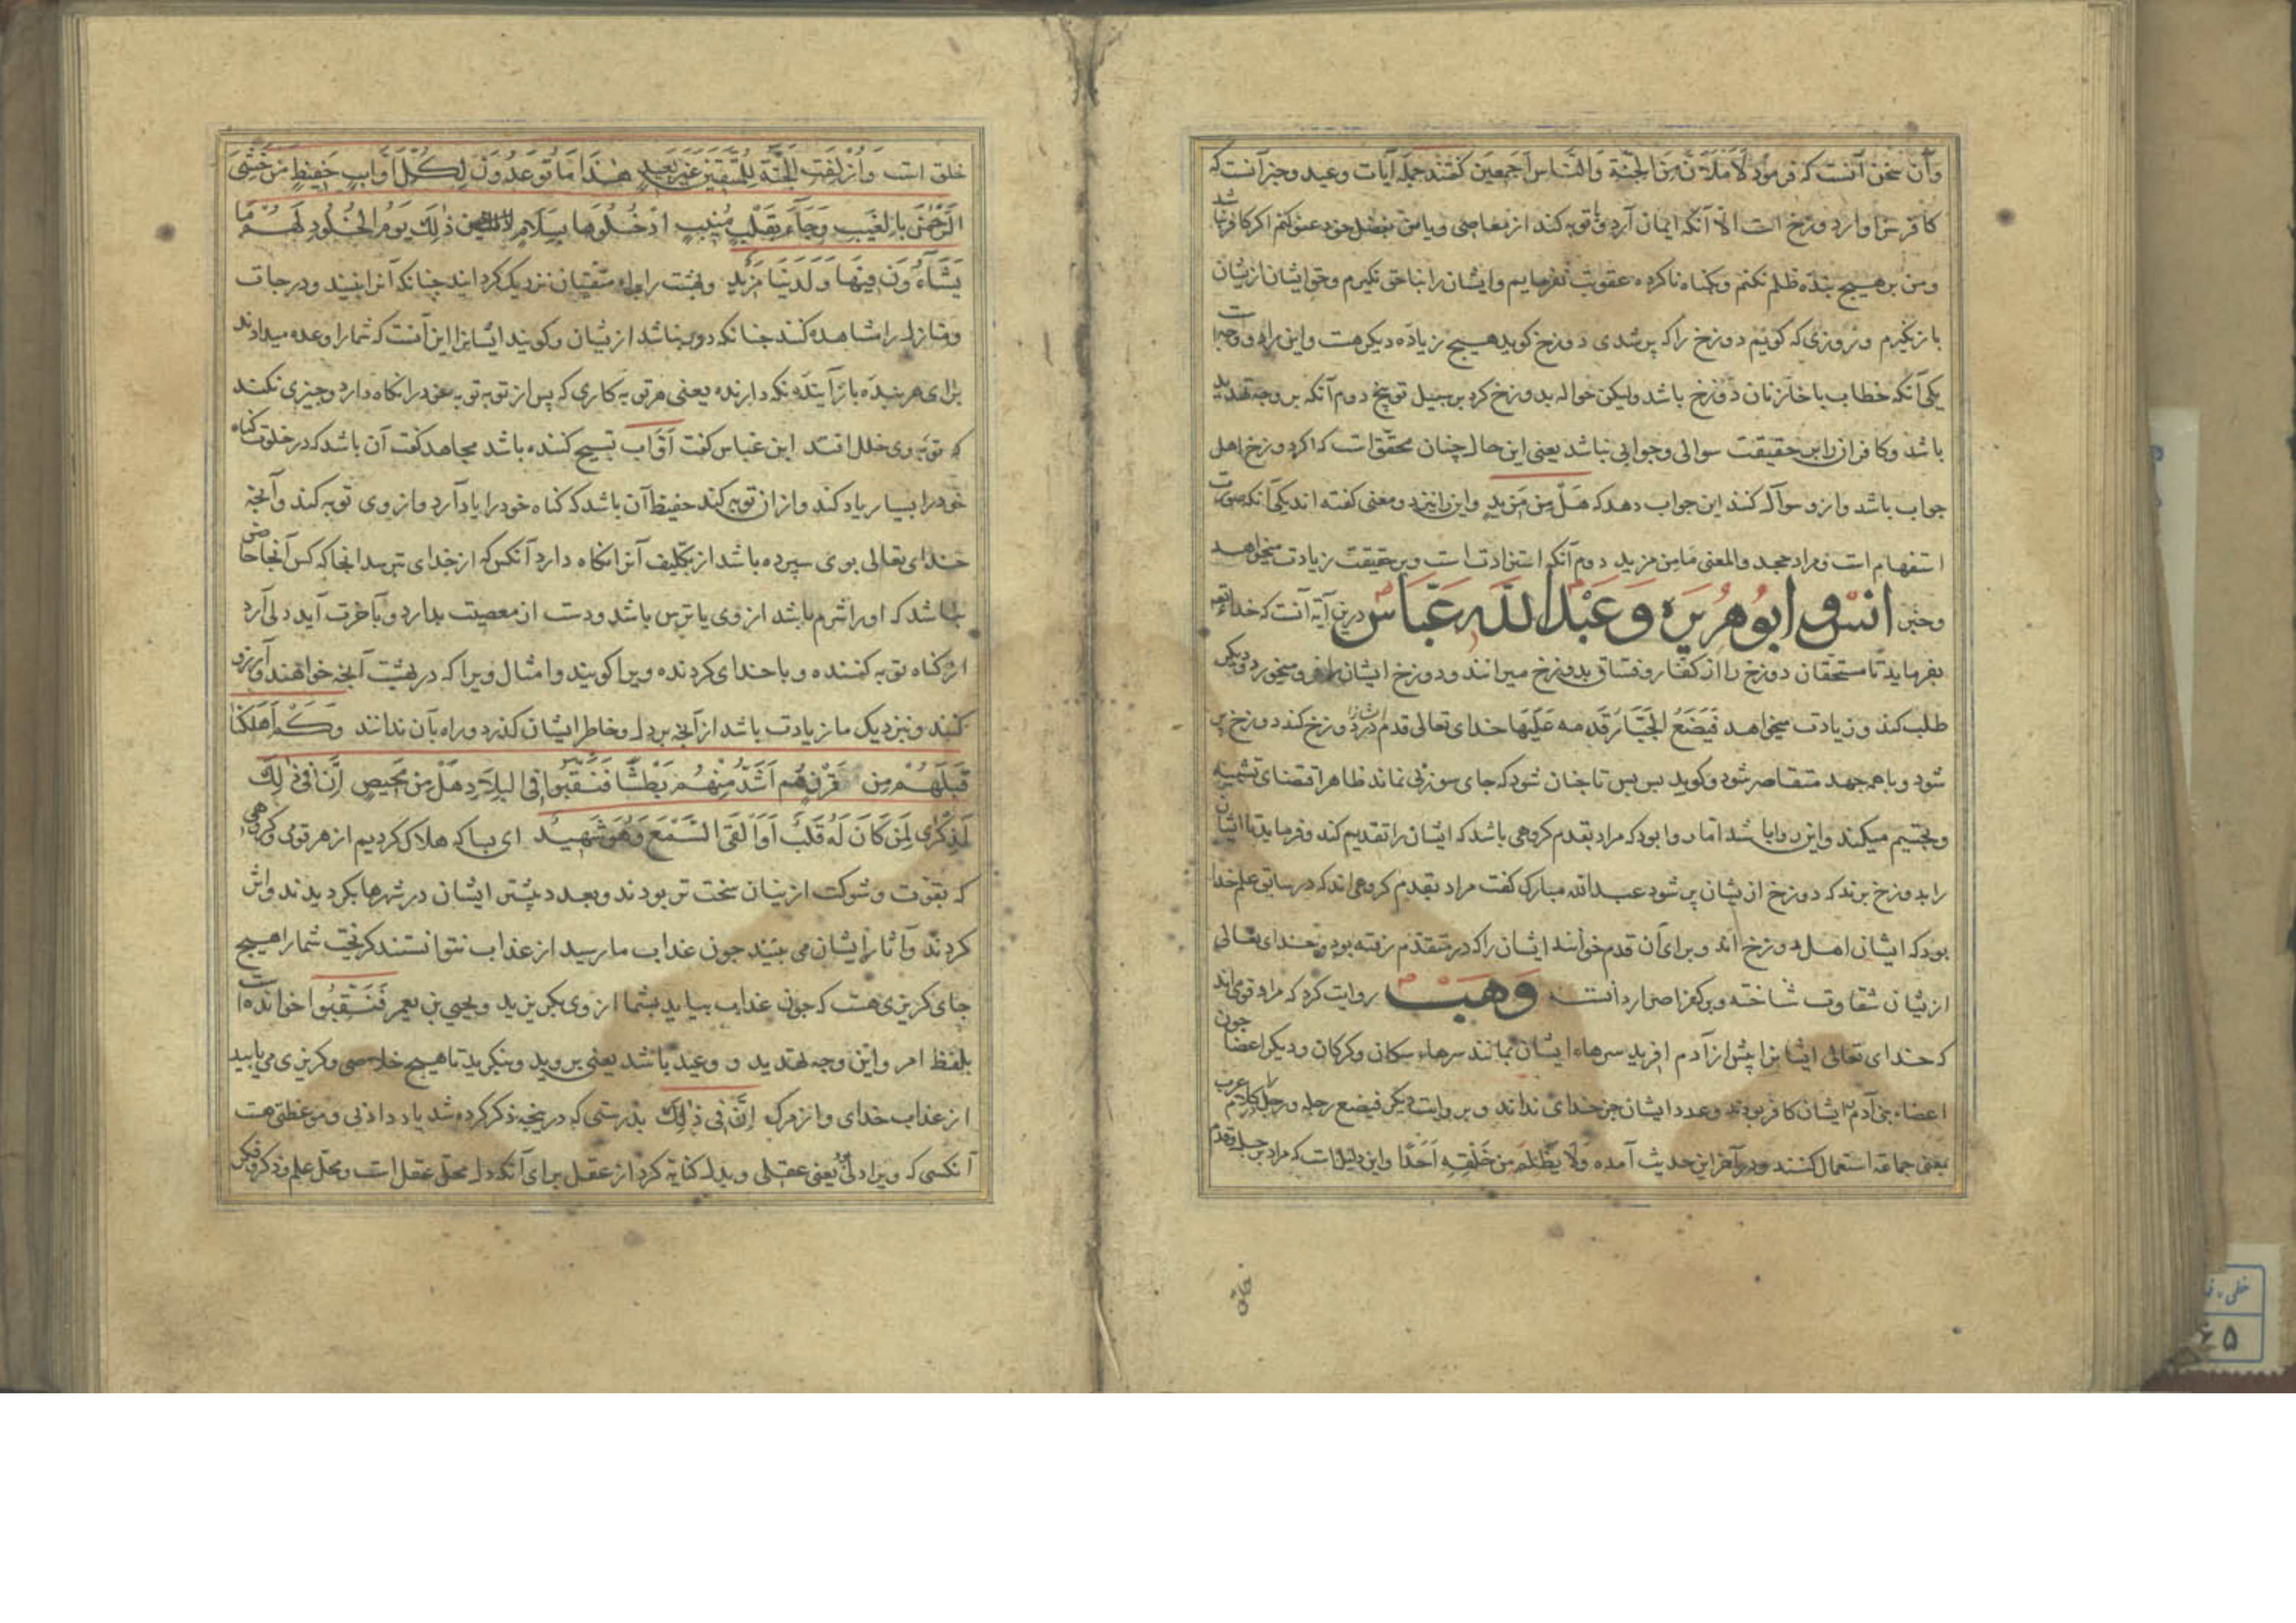 وآن سخن آنست که فرمود لَأَمْلَأَنَّ مِنَ الْجِنَّةِ وَالنَّاسِ أَجْمَعِينَ کفتند جمله آیات وعید وخبر آنست که
کافر سزاوار دوزخ است الا آنکه ایمان آرد وتوبه کند از معاصی ویا من بفضل خود عفو کنم اکر کافر نباشد
ومن بر هیچ بنده ظلم نکنم وکناه ناکرده عقوبت نفرمایم وایشان را بناحق نکیرم وحق ایشان ازیشان
باز نکیرم وروزی که کویم دوزخ را که پر شدی دوزخ کوید هیچ زیاده دیکر هست واین را دو وجه است
یکی آنکه خطاب با خازنان دوزخ باشد ولیکن حواله بدوزخ کرد بر سبیل توبیخ دوم آنکه بر وجه تهدید
باشد وکافران را بر حقیقت سوالی وجوابی نباشد یعنی این حال چنان محقق است که اکر دوزخ اهل
جواب باشد وازو سوال کنند این جواب دهد که هَلْ مِن مَّزِيدٍ واین را نیز دو معنی کفته اند یکی آنکه صورت
استفهام است ومراد جحد والمعنی مامن مزید دوم آنکه استزادت است وبر حقیقت زیادت میخواهد
وخبر انس و ابوهریره وعبدالله عباس درین آیه آنست که خدای تعه
بفرماید تا مستحقان دوزخ را از کفار وفساق بدوزخ میرانند ودوزخ ایشان را فرو میخورد ودیکر
طلب کند وزیادت میخواهد فَيَضَعُ الْجَبَّارُ قدمه عَلَيْهَا خدای تعالی قدم در دوزخ کند دوزخ پر
شود وباهم جهد متقاصر شود وکوید بس بس تا چنان شود که جای سوزنی نماند ظاهر اقتضای تشبیه
وتجسیم میکند واین روا باشد اما روا بود که مراد بقدم کروهی باشد که ایشان را تقدیم کند وفرماید تا ایشان
را بدوزخ برند که دوزخ ازیشان پر شود عبدالله مبارک کفت مراد بقدم کروهی اند که در سابق علم خدا
بود که ایشان اهل دوزخ اند وبرای آن قدم خوانند ایشان را که در متقدم رفته بود وخدای تعالی
ازیشان شقاوت شناخته وبر کفر اصرار دانسته وهب روایت کرد که مراد قومی اند
که خدای تعالی ایشانرا پیش از آدم افرید سرهاء ایشان بمانند سرهاء سکان وکرکان ودیکر اعضا چون
اعضاء بنی آدم ایشان کافر بودند وعدد ایشان جز خدای نداند وبروایت دیکر فیضع رجله ورجل در کلام عرب
بمعنی جماعه استعمال کنند ودر آخر این حدیث آمده وَلَا يَظْلِمُ مِن خَلْقِهِ أَحَدًا واین دلیل است که مراد برجل وقدم
خلق
خلق است وَأُزْلِفَتِ الْجَنَّةُ لِلْمُتَّقِينَ غَيْرَ بَعِيدٍ هٰذَا مَا تُوعَدُونَ لِكُلِّ أَوَّابٍ حَفِيظٍ مَنْ خَشِيَ
الرَّحْمٰنَ بِالْغَيْبِ وَجَاءَ بِقَلْبٍ مُنِيبٍ ادْخُلُوهَا بِسَلَامٍ ذٰلِكَ يَوْمُ الْخُلُودِ لَهُمْ مَا
يَشَاءُونَ فِيهَا وَلَدَيْنَا مَزِيدٌ وبهشت را براء متقیان نزدیک کردانید چنانکه آنرا بینند ودرجات
ومنازل را مشاهده کنند چنانکه دور نباشد ازیشان وکویند ایشانرا این آنست که شما را وعده میدادند
برای هر بنده باز آینده نکه دارنده یعنی هر توبه کاری که پس از توبه توبه خود را نکاه دارد وچیزی نکند
که توبه وی خلل افتد ابن عباس کفت اَوّاب تسبیح کننده باشد مجاهد کفت آن باشد که در خلوت کناه
خود را بسیار یاد کند واز ان توبه کند حفیظ آن باشد که کناه خود را یاد آرد واز وی توبه کند وآنچه
خدای تعالی بوی سپرده باشد از تکلیف آنرا نکاه دارد آنکس که از خدای بترسد آنجا که کس آنجا حاضر
نباشد که او را شرم باشد از وی یا ترس باشد ودست از معصیت بدارد وبآخرت آید دلی آرد
از کناه توبه کننده وبا خدای کردنده ویرا کویند وامثال ویرا که در بهشت آنچه خواهند وآرزو
کنند ونیزدیک ما زیادت باشد از آنچه بر دل وخاطر ایشان کذرد وراه بآن ندانند وَكَمْ أَهْلَكْنَا
قَبْلَهُمْ مِنْ قَرْنٍ هُمْ أَشَدُّ مِنْهُمْ بَطْشًا فَنَقَّبُوا فِي الْبِلَادِ هَلْ مِنْ مَحِيصٍ إِنَّ فِي ذٰلِكَ
لَذِكْرَىٰ لِمَنْ كَانَ لَهُ قَلْبٌ أَوْ أَلْقَى السَّمْعَ وَهُوَ شَهِيدٌ ای بسا که هلاک کردیم از هر قومی وکروهی
که بقوت وشوکت ازینان سخت تر بودند وبعدد بیشتر ایشان در شهرها بکردیدند واثر
کردند وآثار ایشان می بینند چون عذاب ما رسید از عذاب نتوانستند کریخت شما را هیچ
جای کریزی هست که چون عذاب بیاید بشما از وی بکریزید ویحیی بن یعمر فَنَقِّبُوا خوانده است
بلفظ امر واین وجه تهدید و وعید باشد یعنی بروید وبنکرید تا هیچ خلاصی وکریزی می یابید
از عذاب خدای واز مرک إِنَّ فِي ذٰلِكَ بدرستی که درینچه ذکر کرده شد یاد دادنی وموعظتی هست
آنکسی که ویرا دلی یعنی عقلی وبدل کنایه کرد از عقل برای آنکه دل محل عقل است ومحل علم وذکر وفکر
خطی
۶۵